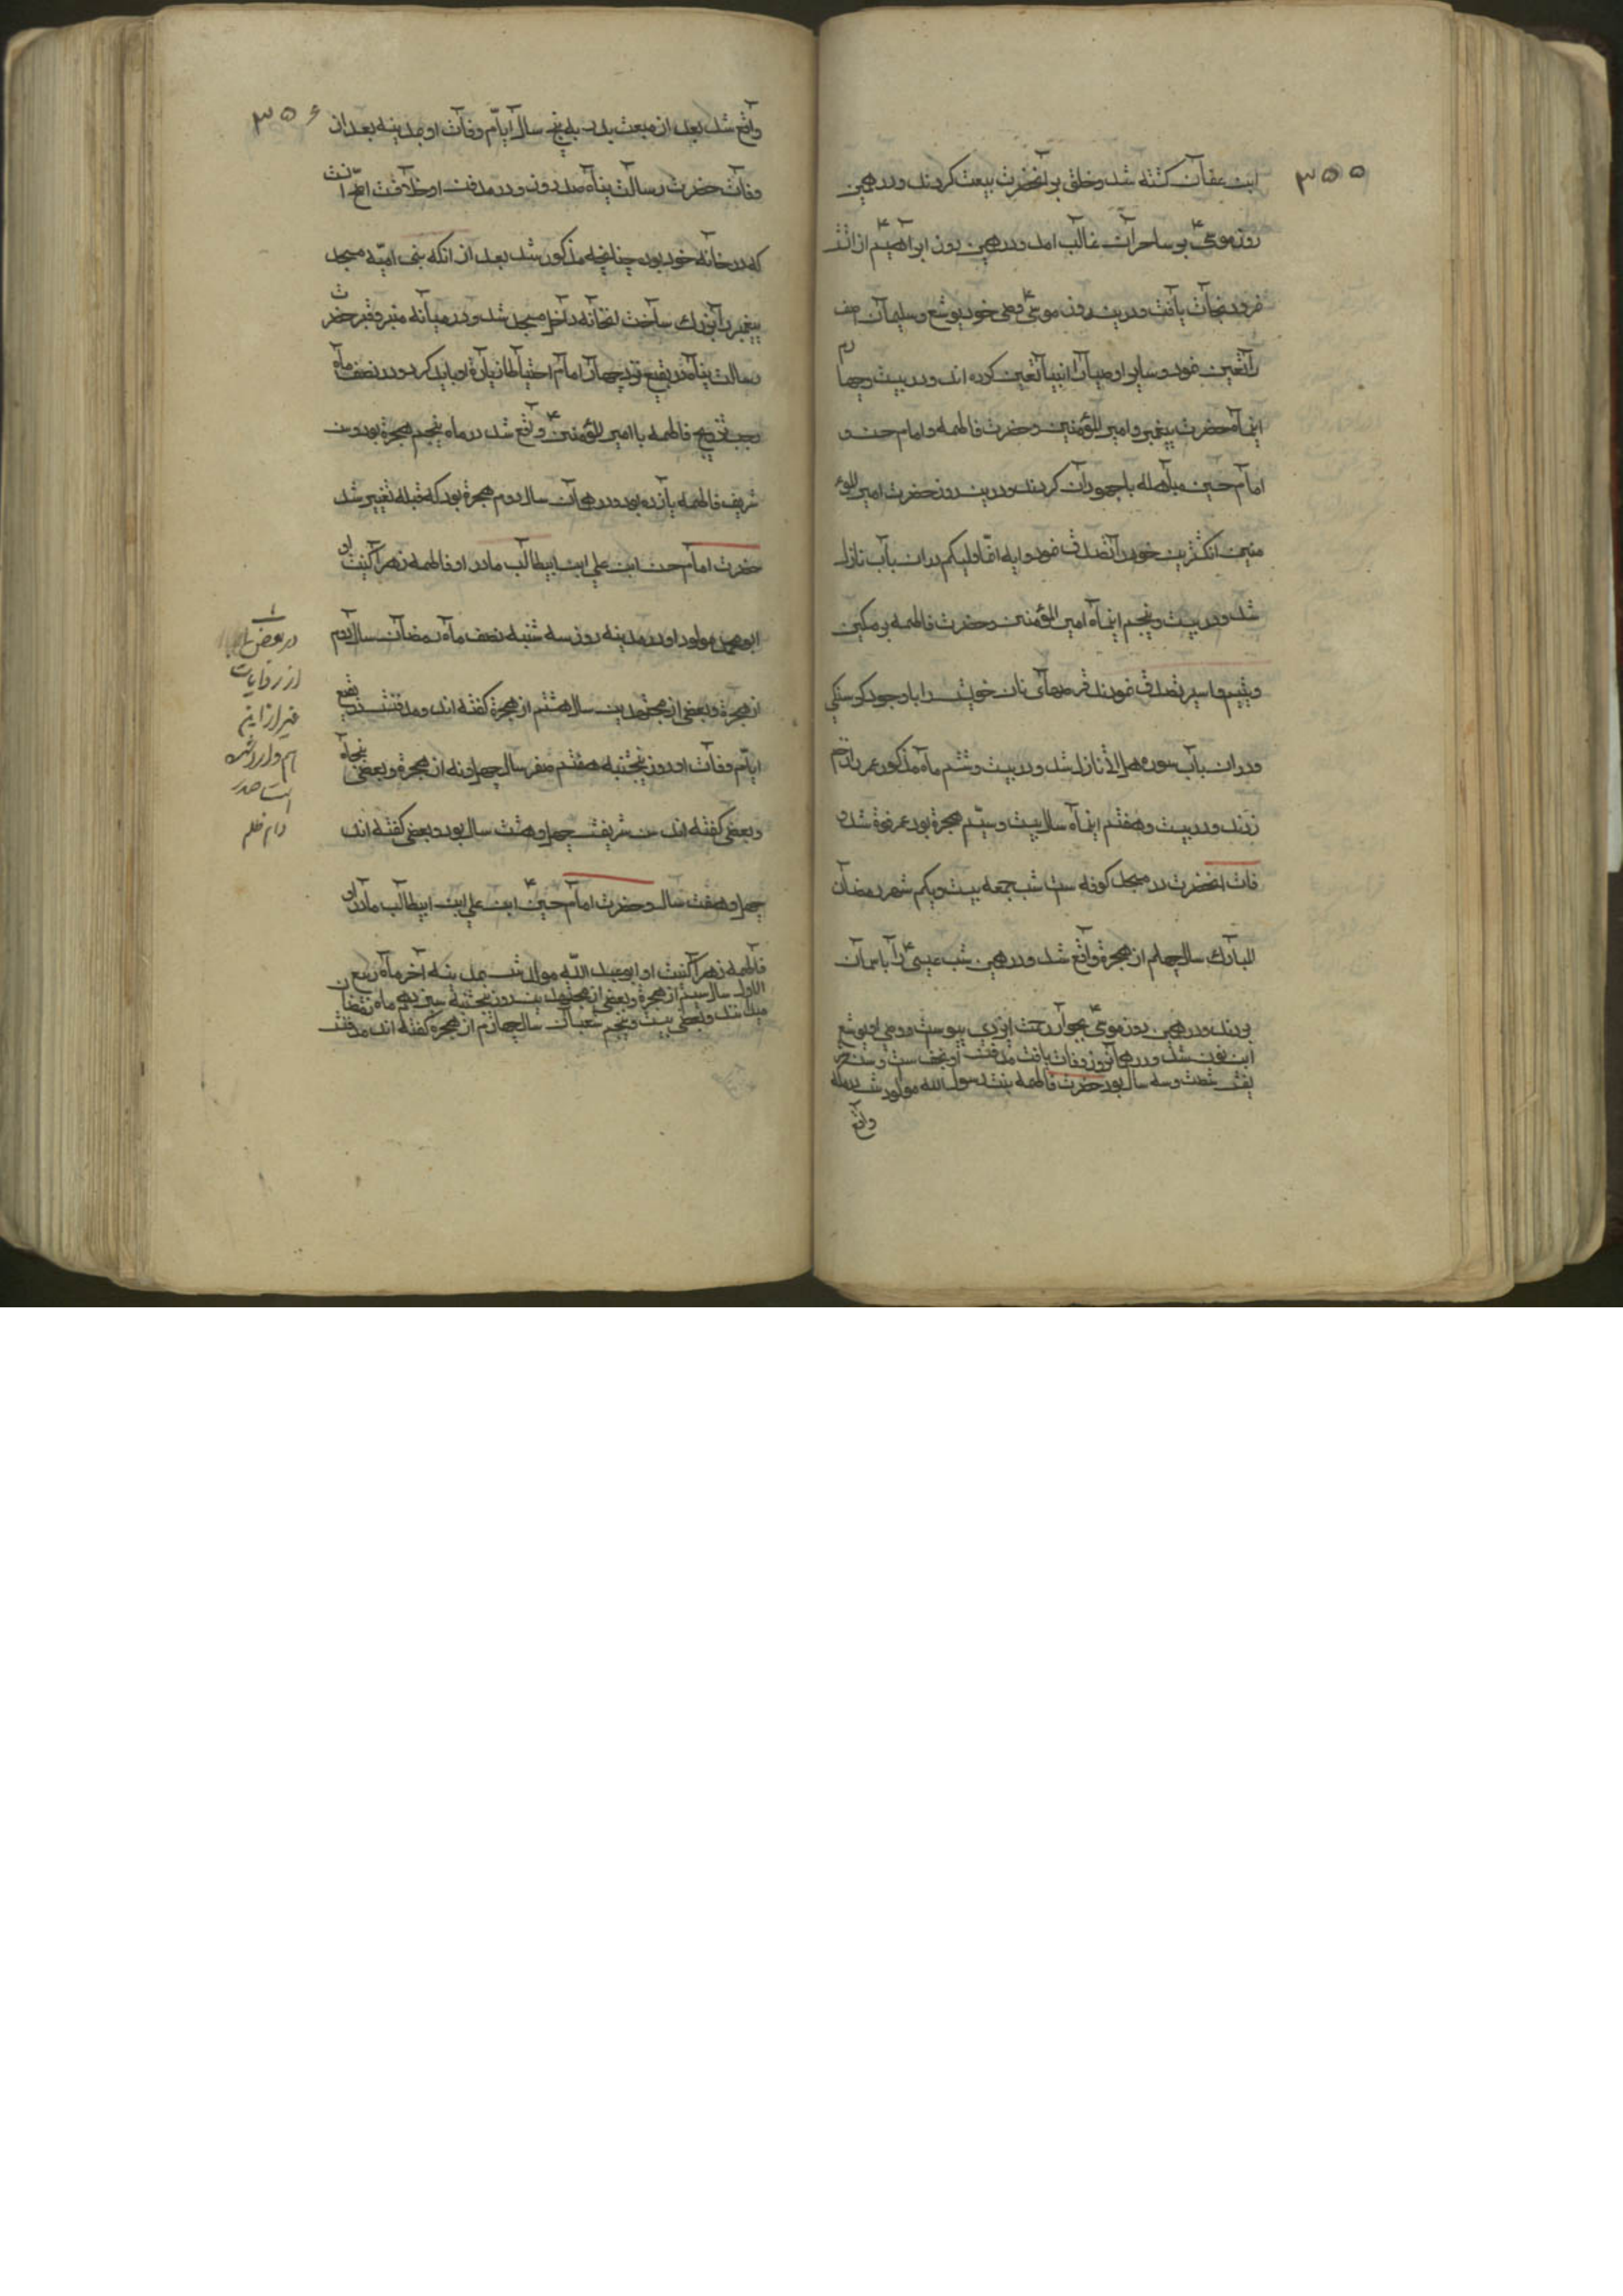 ۳۵۵
ابن عفان کشته شد و خلق بر آنحضرت بیعت کردند و در همین
روز موسی ع بر ساحران غالب امد و در همین روز ابراهیم ع از آتش
نمرود نجات یافت و درین روز موسی ع وصی خود یوشع و سلیمان اصف
را تعین نمود و سایر اوصیا را انبیا تعین کرده اند و در بیست و چهارم
اینماه حضرت پیغمبر و امیر المؤمنین و حضرت فاطمه و امام حسن و
امام حسین مباهله با جهودان کردند و درین روز حضرت امیر المؤ
منین انکشترین خود را تصدق نمود و ایه انما ولیکم دران باب نازل
شد و در بیست و پنجم اینماه امیر المؤمنین و حضرت فاطمه بر مسکین
و یتیم و اسیر تصدق نمودند قرصهای نان خویش را با وجود کرسنکی
و دران باب سوره هل اتی نازل شد و در بیست و ششم ماه مذکور عمر را زخم
زدند و در بیست و هفتم اینماه سال بیست و سیم هجرة بود عمر فوة شد و
فات انحضرت در مسجد کوفه ست شب جمعه بیست و یکم شهر رمضان
المبارک سال چهلم از هجرة واقع شد و در همین شب عیسی ع را باسمان
بردند و در همین روز موسی ع بجوار رحمت ایزدی پیوست و وصی او یوشع
ابن نون شد و در همانروز وفات یافت مدفنش او نجف ست و سن شر
یفش شصت و سه سال بود حضرت فاطمه بنت رسول الله مولودش در مکه
واقع
۳۵۶
واقع شد بعد از مبعث پدر به پنج سال ایام وفات او مدینه بعد از
وفات حضرت رسالت پناه صد روز و در مدفن او خلافت اصح انست
که در خانه خود بود چنانچه مذکور شد بعد از انکه بنی امیه مسجد
پیغمبر را بزرک ساخت انخانه داخل مسجد شد و در میانه منبر و قبر حضرت
رسالت پناه در بقیع نزد چهار امام احتیاطا زیارة او باید کرد و در نصف ماه
رجب تزویج فاطمه با امیر المؤمنین ع واقع شد در ماه پنجم هجرة بود و سن
شریف فاطمه یازده بود و در همان سال دوم هجرة بود که قبله تغییر شد
حضرت امام حسن ابن علی ابن ابیطالب مادر او فاطمه زهرا کنیت او
ابو محمد مولود او در مدینه روز سه شنبه نصف ماه رمضان سال دوم
از هجرة و بعضی از مجتهدین سال هشتم از هجرة کفته اند و مدفنش در بقیع
ایام وفات او روز پنجشنبه هفتم صفر سال چهل و نه از هجرة و بعضی پنجاه
و بعضی کفته اند سن شریفش چهل و هشت سال بود و بعضی کفته اند
چهل و هفت سال و حضرت امام حسین ع ابن علی ابن ابیطالب مادر او
فاطمه زهرا کنیت او ابو عبد الله مولدش بمدینه آخر ماه ربیع
الاول سال سیم از هجرة و بعضی از مجتهدین روز پنجشنبه سیزدهم ماه رمضان
میدانند و بعضی بیست و پنجم شعبان سال چهارم از هجرة کفته اند مدفنش
در بعض
از روایات
غیر از این
هم وارد شده
است صدر
دام ظله